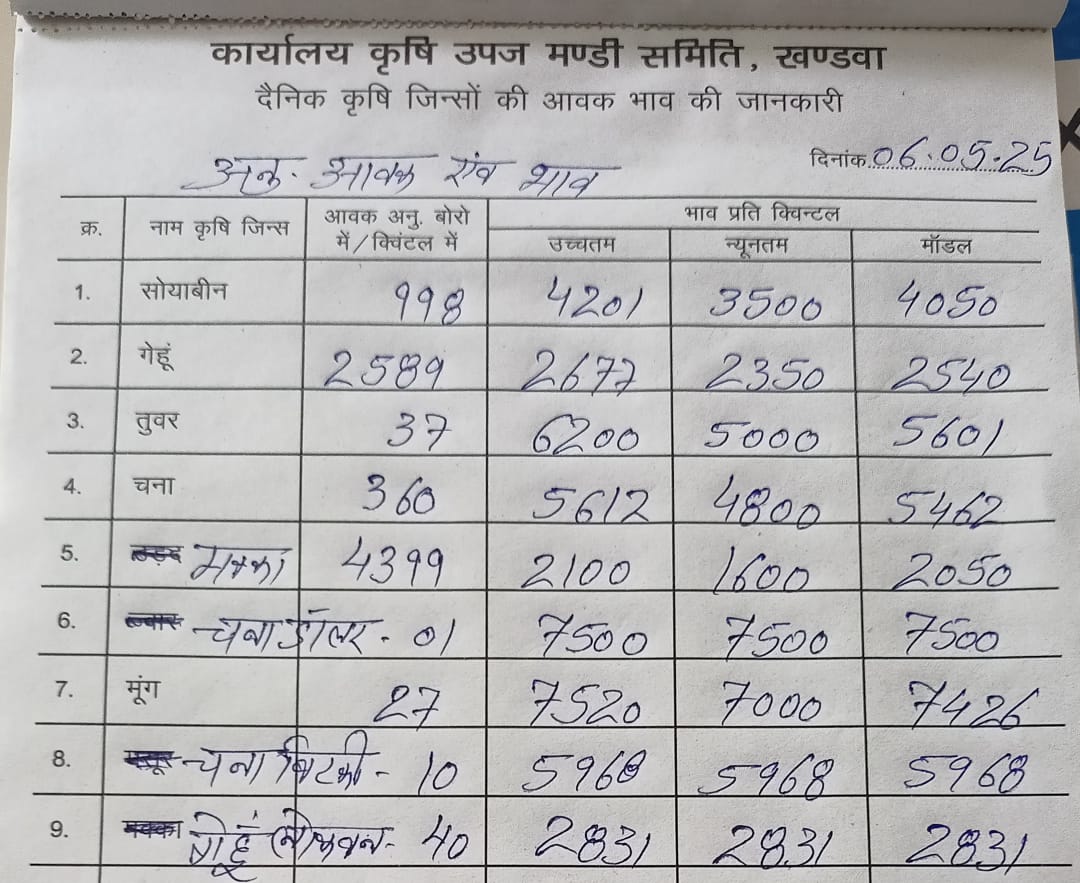 कार्यालय कृषि उपज मण्डी समिति, खण्डवा
दैनिक कृषि जिन्सों की आवक भाव की जानकारी
दिनांक 06.05.25
अनु. आवक एंव भाव
क्र. नाम कृषि जिन्स आवक अनु. बोरो में/क्विंटल में भाव प्रति क्विन्टल
उच्चतम न्यूनतम मॉडल
1. सोयाबीन 998 4201 3500 4050
2. गेहूं 2589 2677 2350 2540
3. तुवर 37 6200 5000 5601
4. चना 360 5612 4800 5462
5. मक्का 4399 2100 1600 2050
6. ज्वार चना डॉलर - 01 7500 7500 7500
7. मूंग 27 7520 7000 7426
8. चना बिटकी - 10 5968 5968 5968
9. मक्का गेहूं - 40 2831 2831 2831